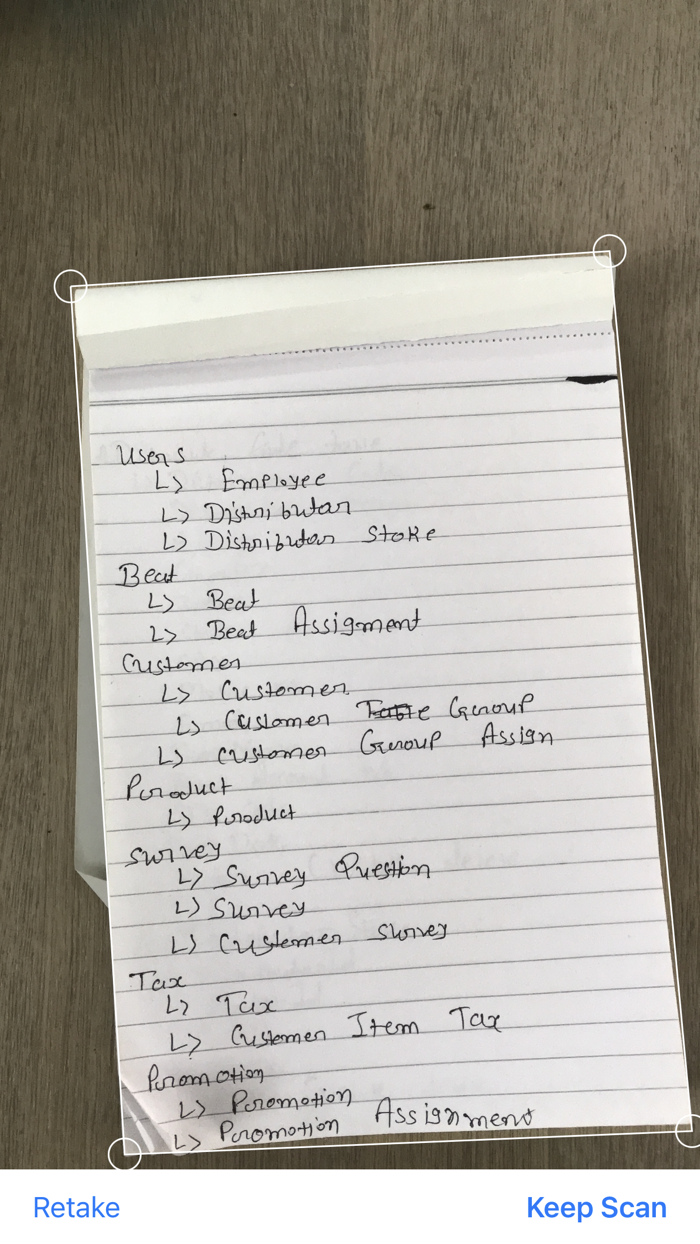 Users
↳ Employee
↳ Distributor
↳ Distributor Store
Beat
↳ Beat
↳ Beat Assigment
Customer
↳ Customer
↳ Customer Group
↳ Customer Group Assign
Product
↳ Product
Survey
↳ Survey Question
↳ Survey
↳ Customer Survey
Tax
↳ Tax
↳ Customer Item Tax
Promotion
↳ Promotion
↳ Promotion Assignment
Retake Keep Scan